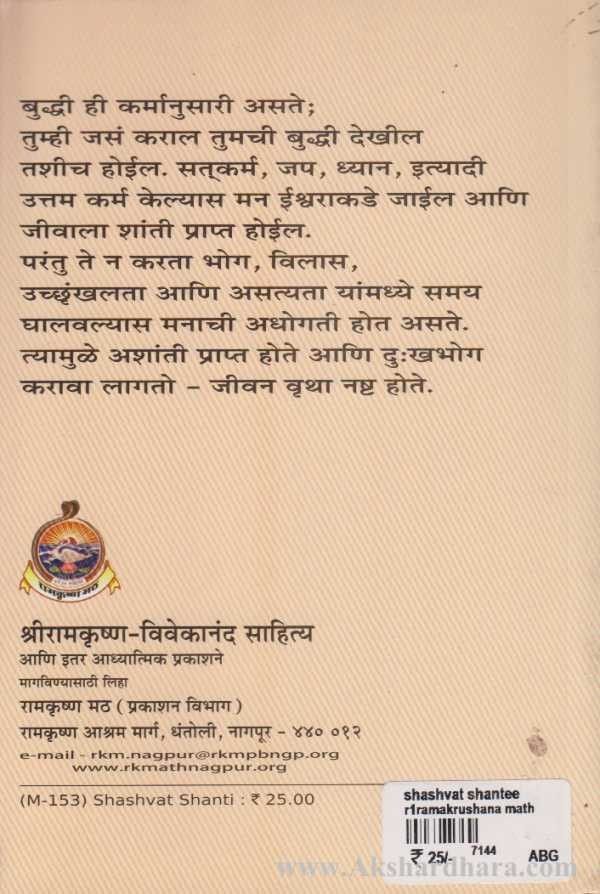 बुद्धी ही कर्मानुसारी असते;
तुम्ही जसं कराल तुमची बुद्धी देखील
तशीच होईल. सत्‌कर्म, जप, ध्यान, इत्यादी
उत्तम कर्म केल्यास मन ईश्वराकडे जाईल आणि
जीवाला शांती प्राप्त होईल.
परंतु ते न करता भोग, विलास,
उच्छृंखलता आणि असत्यता यांमध्ये समय
घालवल्यास मनाची अधोगती होत असते.
त्यामुळे अशांती प्राप्त होते आणि दुःखभोग
करावा लागतो – जीवन वृथा नष्ट होते.
रामकृष्ण मठ
श्रीरामकृष्ण-विवेकानंद साहित्य
आणि इतर आध्यात्मिक प्रकाशने
मागविण्यासाठी लिहा
रामकृष्ण मठ ( प्रकाशन विभाग )
रामकृष्ण आश्रम मार्ग, धंतोली, नागपूर - ४४० ०१२
e-mail - rkm.nagpur@rkmpbngp.org
www.rkmathnagpur.org
(M-153) Shashvat Shanti : ₹ 25.00
shashvat shantee
r1ramakrushana math
₹ 25/- 7144 ABG
www.Akshardhara.com